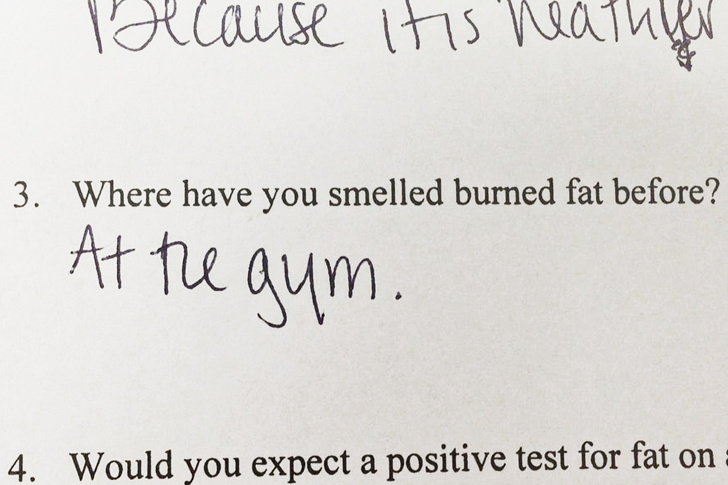 Because it is heathier
3. Where have you smelled burned fat before?
At the gym.
4. Would you expect a positive test for fat on